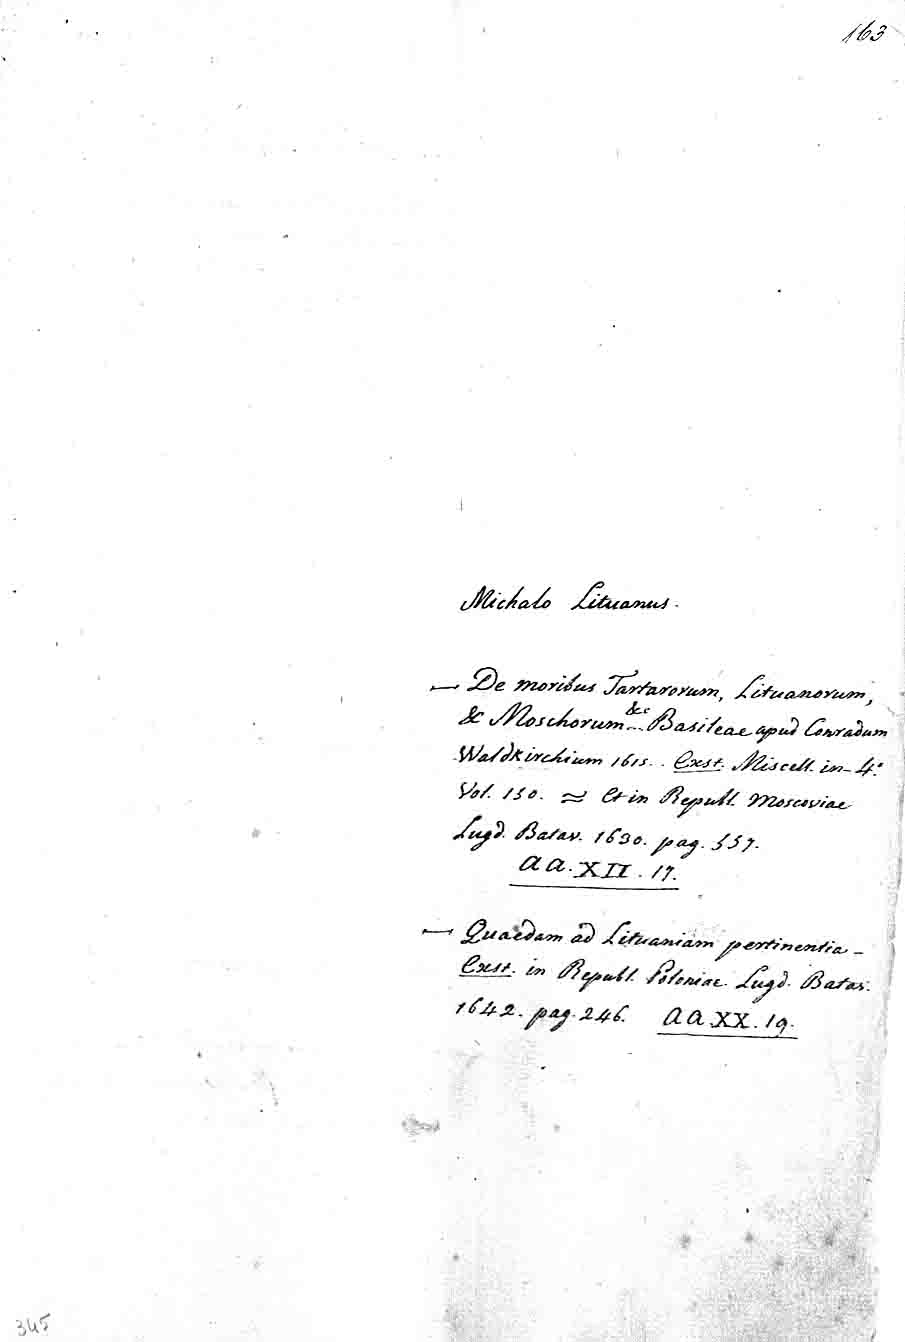 163
Michalo Lituanus.
— De moribus Tartarorum, Lituanorum,
& Moschorum &c Basileae apud Conradum
Waldkirchium 1615. Exst. Miscell. in-4.°
Vol. 150. ≈ Et in Republ. Moscoviae
Lugd. Batav. 1630. pag. 557.
aa. XII. 17.
— Quaedam ad Lituaniam pertinentia —
Exst. in Republ. Poloniae. Lugd. Batav.
1642. pag. 246. aa. XX. 19.
345